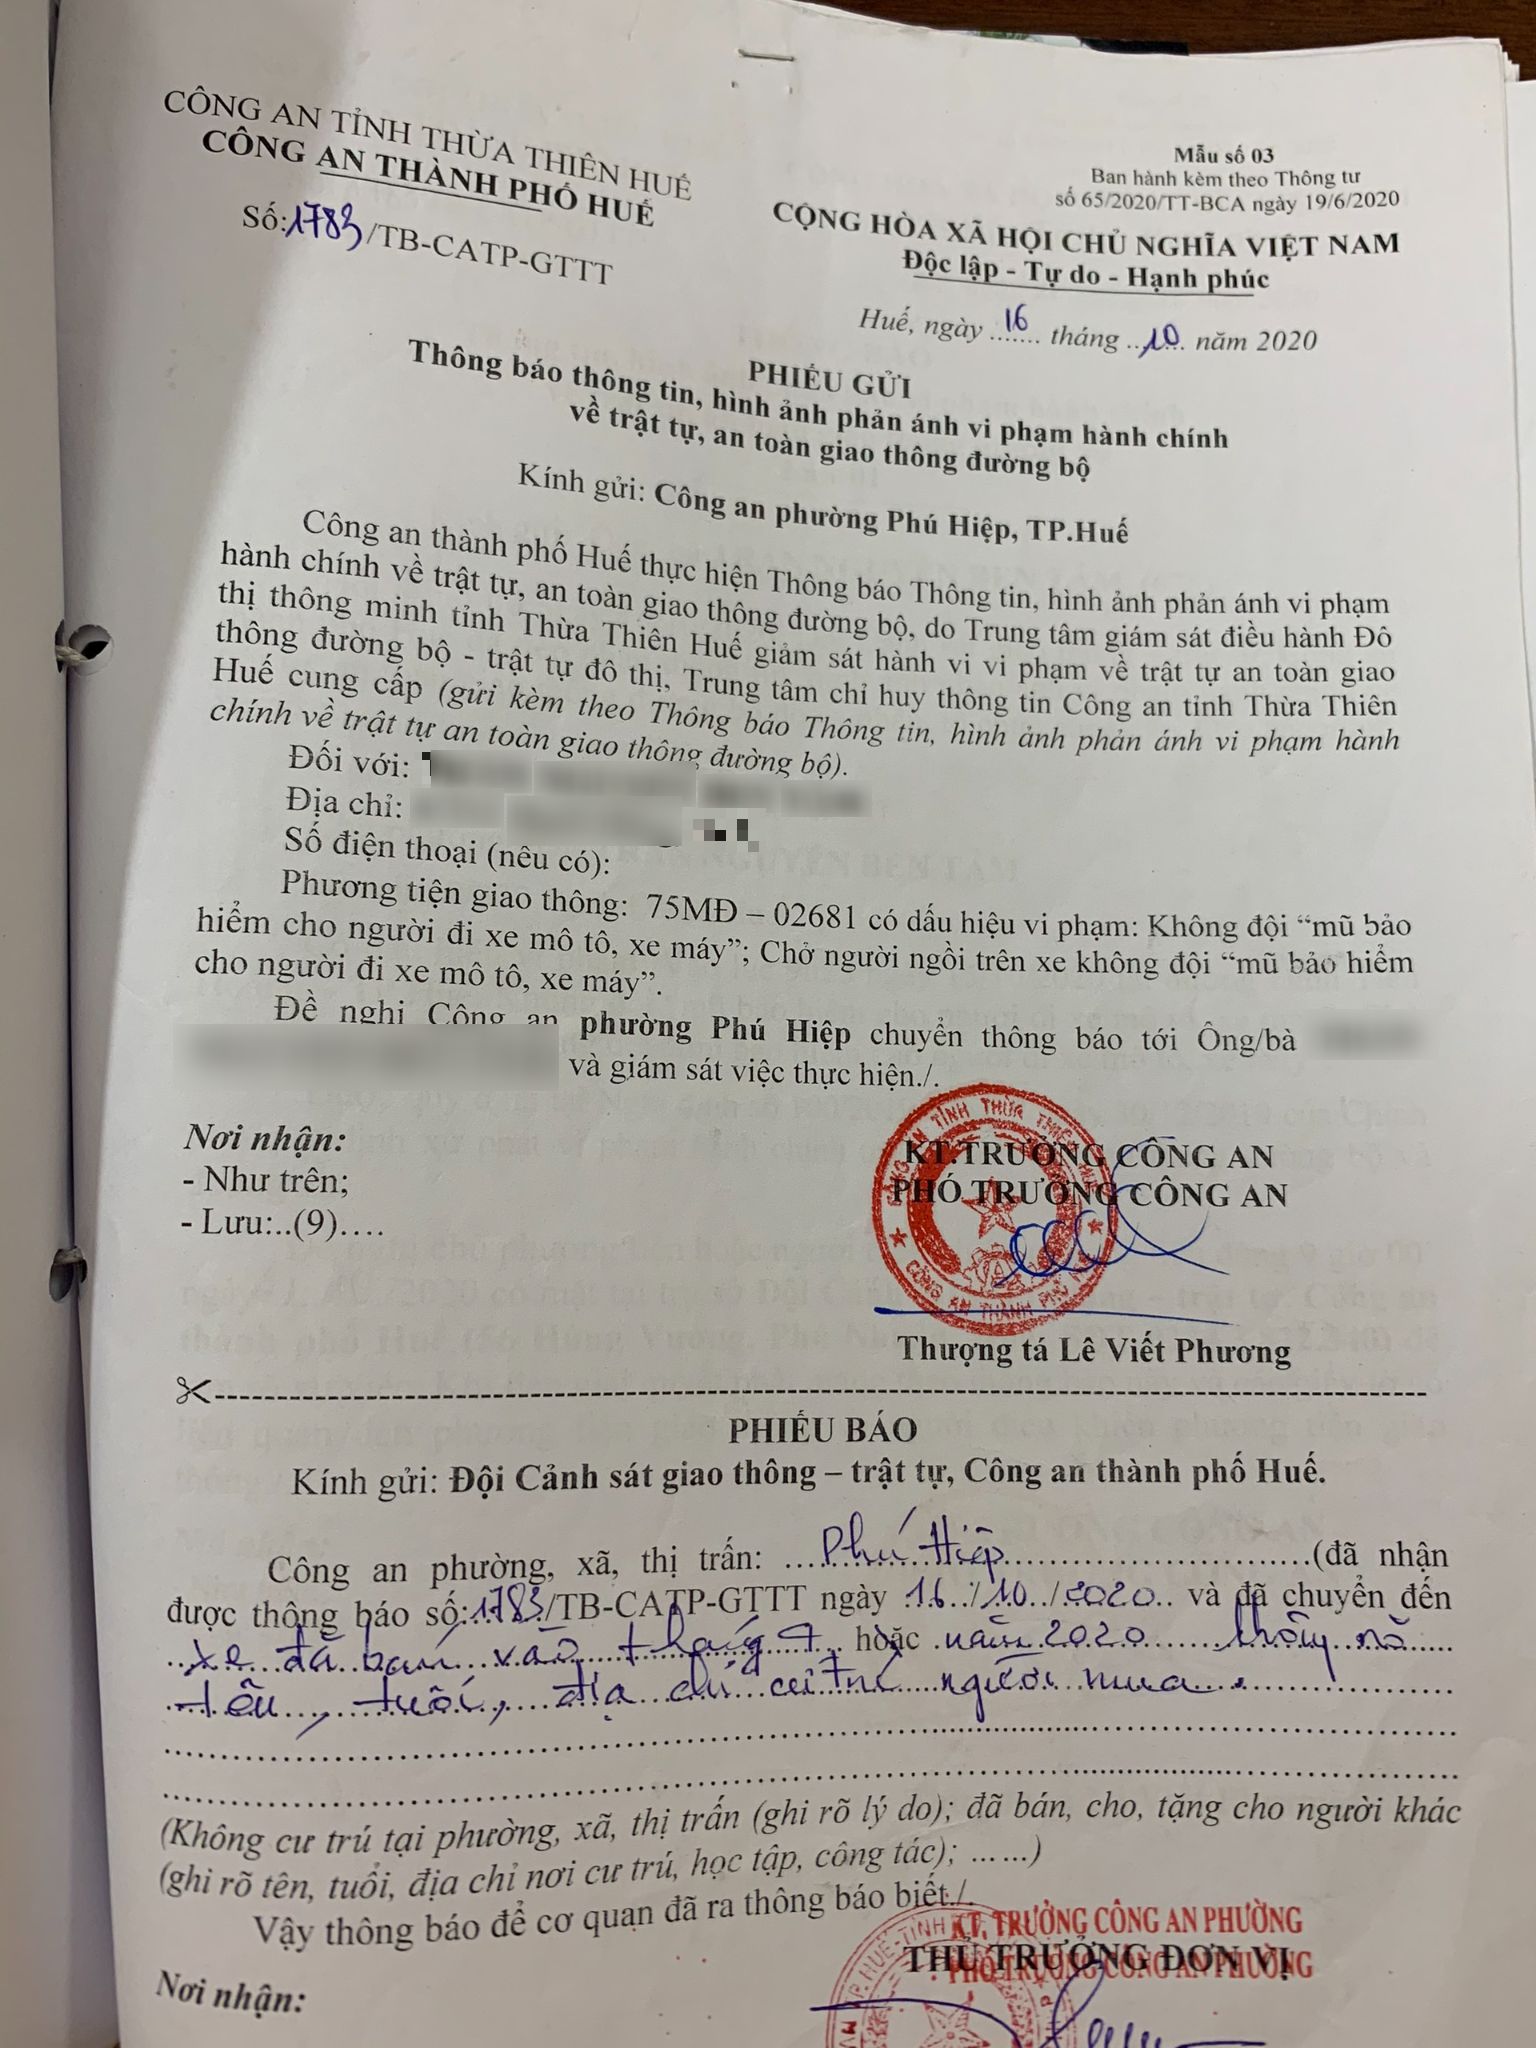 CÔNG AN TỈNH THỪA THIÊN HUẾ
CÔNG AN THÀNH PHỐ HUẾ
Số:1783/TB-CATP-GTTT
Mẫu số 03
Ban hành kèm theo Thông tư
số 65/2020/TT-BCA ngày 19/6/2020
CỘNG HÒA XÃ HỘI CHỦ NGHĨA VIỆT NAM
Độc lập - Tự do - Hạnh phúc
Huế, ngày 16 tháng 10 năm 2020
PHIẾU GỬI
Thông báo thông tin, hình ảnh phản ánh vi phạm hành chính
về trật tự, an toàn giao thông đường bộ
Kính gửi: Công an phường Phú Hiệp, TP.Huế
Công an thành phố Huế thực hiện Thông báo Thông tin, hình ảnh phản ánh vi phạm
hành chính về trật tự, an toàn giao thông đường bộ, do Trung tâm giám sát điều hành Đô
thị thông minh tỉnh Thừa Thiên Huế giảm sát hành vi vi phạm về trật tự an toàn giao
thông đường bộ - trật tự đô thị, Trung tâm chỉ huy thông tin Công an tỉnh Thừa Thiên
Huế cung cấp (gửi kèm theo Thông báo Thông tin, hình ảnh phản ánh vi phạm hành
chính về trật tự an toàn giao thông đường bộ).
Đối với:
Địa chỉ:
Số điện thoại (nêu có):
Phương tiện giao thông: 75MĐ – 02681 có dấu hiệu vi phạm: Không đội “mũ bảo
hiểm cho người đi xe mô tô, xe máy”; Chở người ngồi trên xe không đội “mũ bảo hiểm
cho người đi xe mô tô, xe máy”.
Đề nghị Công an phường Phú Hiệp chuyển thông báo tới Ông/bà
và giám sát việc thực hiện./.
Nơi nhận:
- Như trên;
- Lưu:..(9)....
KT.TRƯỞNG CÔNG AN
PHÓ TRƯỞNG CÔNG AN
CÔNG AN TỈNH THỪA THIÊN HUẾ
CÔNG AN THÀNH PHỐ HUẾ
Thượng tá Lê Viết Phương
PHIẾU BÁO
Kính gửi: Đội Cảnh sát giao thông – trật tự, Công an thành phố Huế.
Công an phường, xã, thị trấn: Phú Hiệp (đã nhận
được thông báo số:1783/TB-CATP-GTTT ngày 16/10/2020 và đã chuyển đến
xe đã bán vào tháng 9 hoặc năm 2020 không rõ
tên, tuổi, địa chỉ cư trú người mua.
(Không cư trú tại phường, xã, thị trấn (ghi rõ lý do); đã bán, cho, tặng cho người khác
(ghi rõ tên, tuổi, địa chỉ nơi cư trú, học tập, công tác); ......)
Vậy thông báo để cơ quan đã ra thông báo biết./.
KT. TRƯỞNG CÔNG AN PHƯỜNG
THỦ TRƯỞNG ĐƠN VỊ
PHÓ TRƯỞNG CÔNG AN PHƯỜNG
Nơi nhận: